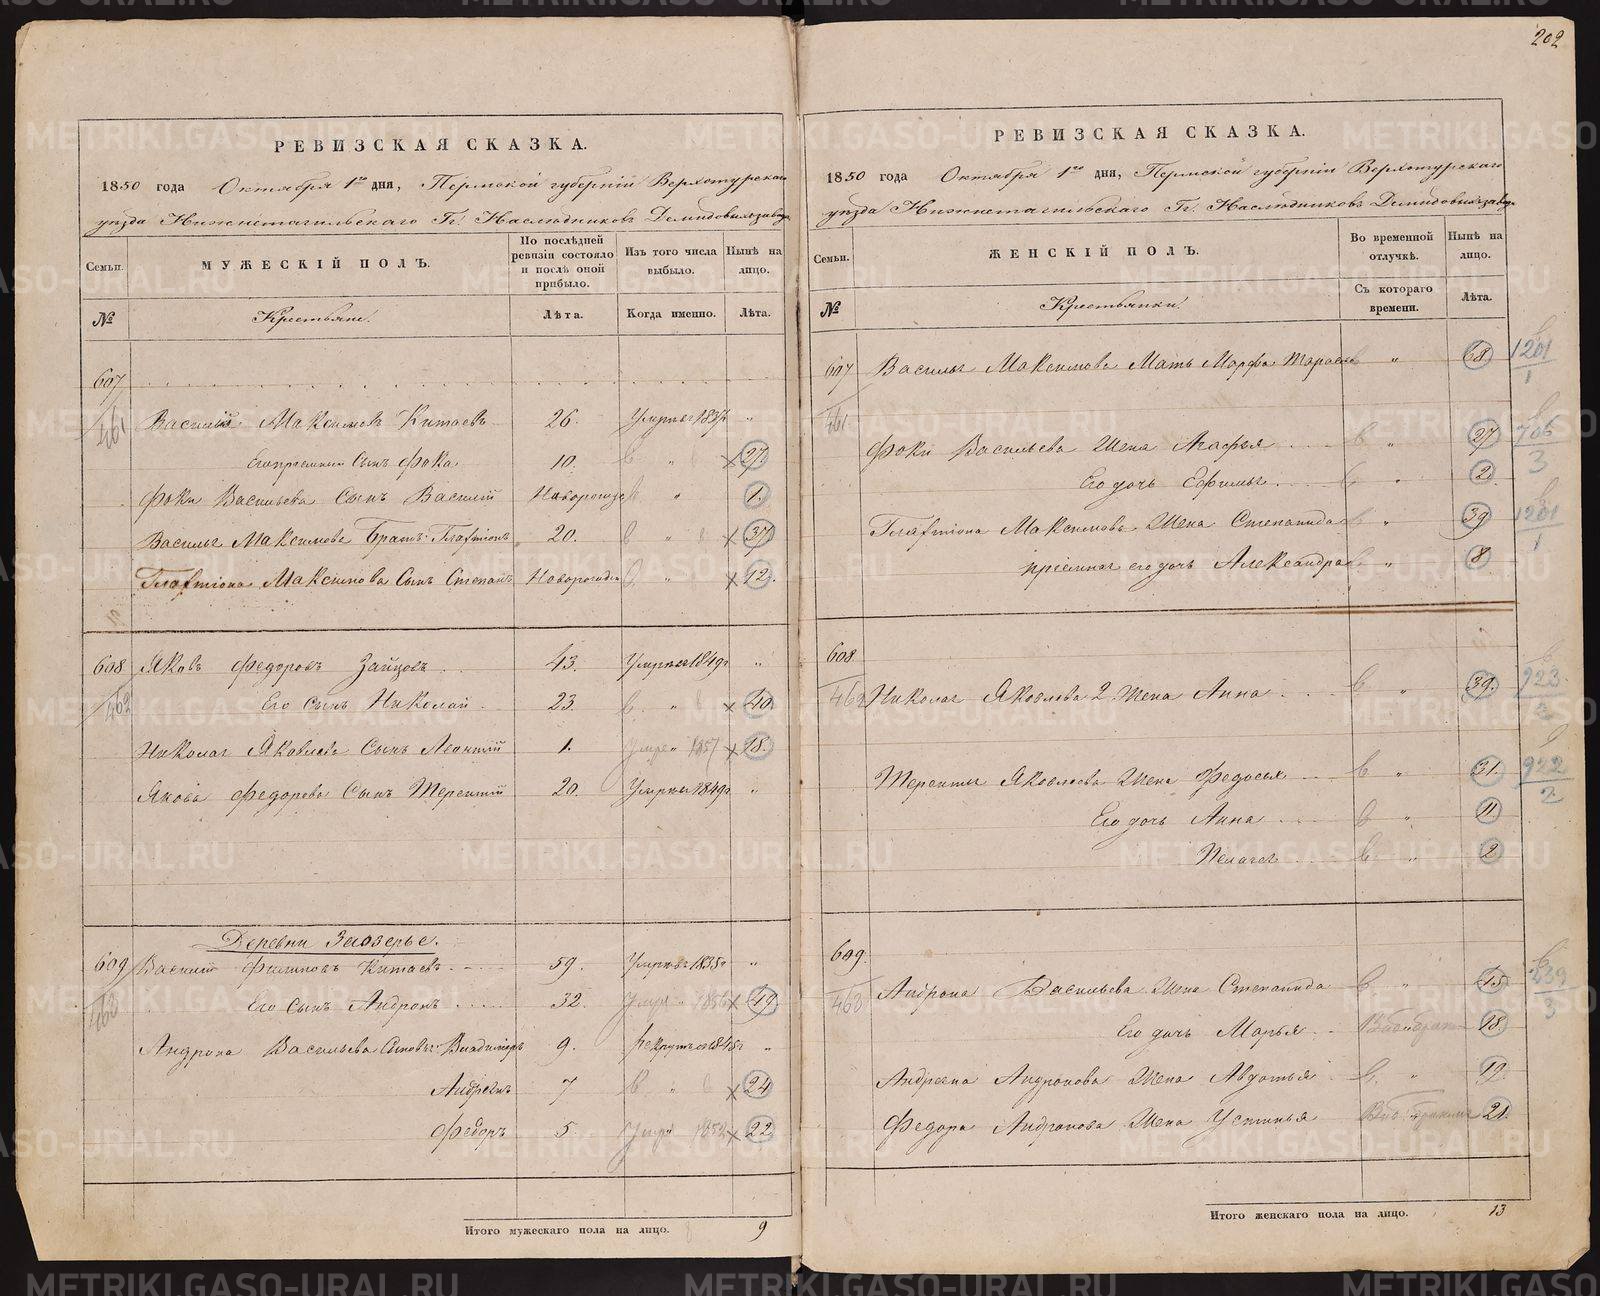 202
РЕВИЗСКАЯ СКАЗКА.
1850 года Октября 1го дня, Пермской губерніи Верхотурскаго
уѣзда Нижнетагильскаго Гг. Наслѣдниковъ Демидовыхъ завода
Семьи.
МУЖЕСКІЙ ПОЛЪ.
По послѣдней ревизіи состояло и послѣ оной прибыло.
Изъ того числа выбыло.
Нынѣ на лицо.
№
Крестьяне.
Лѣта.
Когда именно.
Лѣта.
607
461
Василій Максимовъ Китаевъ 26. Умеръ 1837 "
Его пріемный Сынъ Фока 10. " 27
Фоки Васильева Сынъ Василій Новорожде " 1.
Василья Максимова Братъ Галактіонъ 20. " 37
Галактіона Максимова Сынъ Степанъ Новорожден " 12.
608 Яковъ Федоровъ Зайцовъ 43. Умеръ 1849г "
462 Его Сынъ Николай 23. " 40
Николая Яковлева Сынъ Леонтій 1. Умре 1857 18.
Якова Федорова Сынъ Терентій 20. Умеръ 1849г "
Деревни Заозерье.
609 Василій Филиповъ Китаевъ 59. Умеръ 1835г "
463 Его Сынъ Андронъ 32. Умре 1856 49
Андрона Васильева Сыновья: Владимиръ 9. рекрутъ 1848г "
Андреянъ 7 " 24
Федоръ 5. Умре 1852 22
Итого мужескаго пола на лицо. 9
РЕВИЗСКАЯ СКАЗКА.
1850 года Октября 1го дня, Пермской губерніи Верхотурскаго
уѣзда Нижнетагильскаго Гг. Наслѣдниковъ Демидовыхъ завод
Семьи.
ЖЕНСКІЙ ПОЛЪ.
Во временной отлучкѣ.
Нынѣ на лицо.
№
Крестьянки.
Съ котораго времени.
Лѣта.
607 Василья Максимова Мать Марфа Тарасова " 68 1201/1
461 Фоки Васильева Жена Агафья " 27 706/3
Его дочь Ефимья " 2
Галактіона Максимова Жена Степанида " 39 1201/1
пріемная его дочь Александра " 8
608.
462 Николая Яковлева 2 Жена Анна " 39. 923/2
Терентья Яковлева Жена Федосья " 31. 922/2
Его дочь Анна " 11.
Пелагея " 2
609.
463 Андрона Васильева Жена Степанида " 45 239/3
Его дочь Марья 18.
Андреяна Андронова Жена Авдотья " 19
Федора Андронова Жена Устинья 21.
Итого женскаго пола на лицо. 13
METRIKI.GASO-URAL.RU